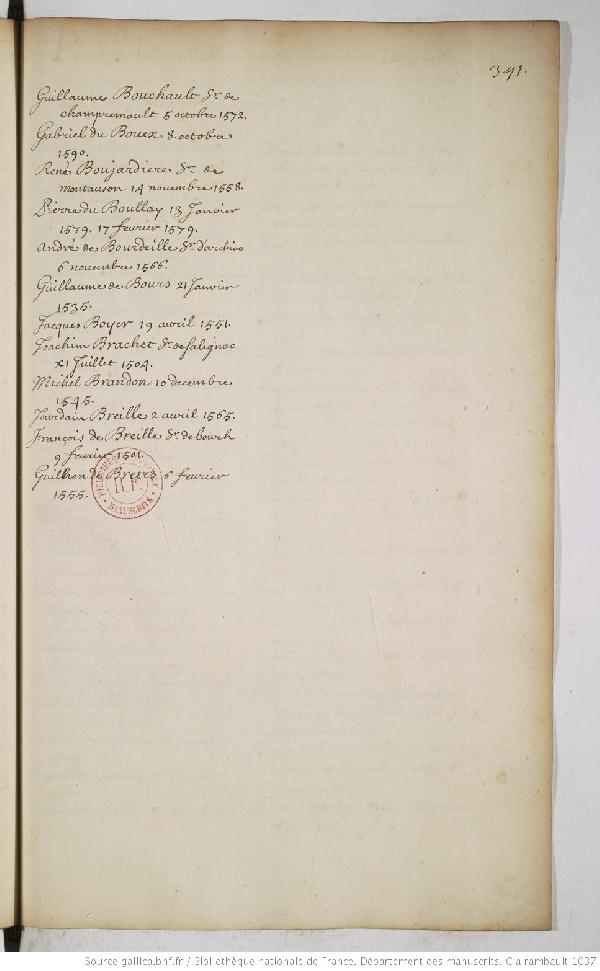 341.
Guillaume Bouchault Sr. de
champremault 5 octobre 1572.
Gabriel du Bouex 8 octobre
1590.
René Boujardiere Sr. de
montauson 14 novembre 1558.
Pierre du Boullay 13 Janvier
1579. 17 fevrier 1579.
André de Bourdeille Sr. d'archiac
6 novembre 1566.
Guillaume de Bours 21 Janvier
1535.
Jacques Boyer 19 avril 1551.
Joachim Brachet Sr. de Salignac
21 Juillet 1504.
Michel Brandon 10 decembre
1545.
Jourdain Breille 2 avril 1565.
François de Breille Sr. de
9 fevrier 1501.
de 6 fevrier
1555.
MANUSCRITS
Source gallica.bnf.fr / Bibliothèque nationale de France. Département des manuscrits. Clairambault 1037